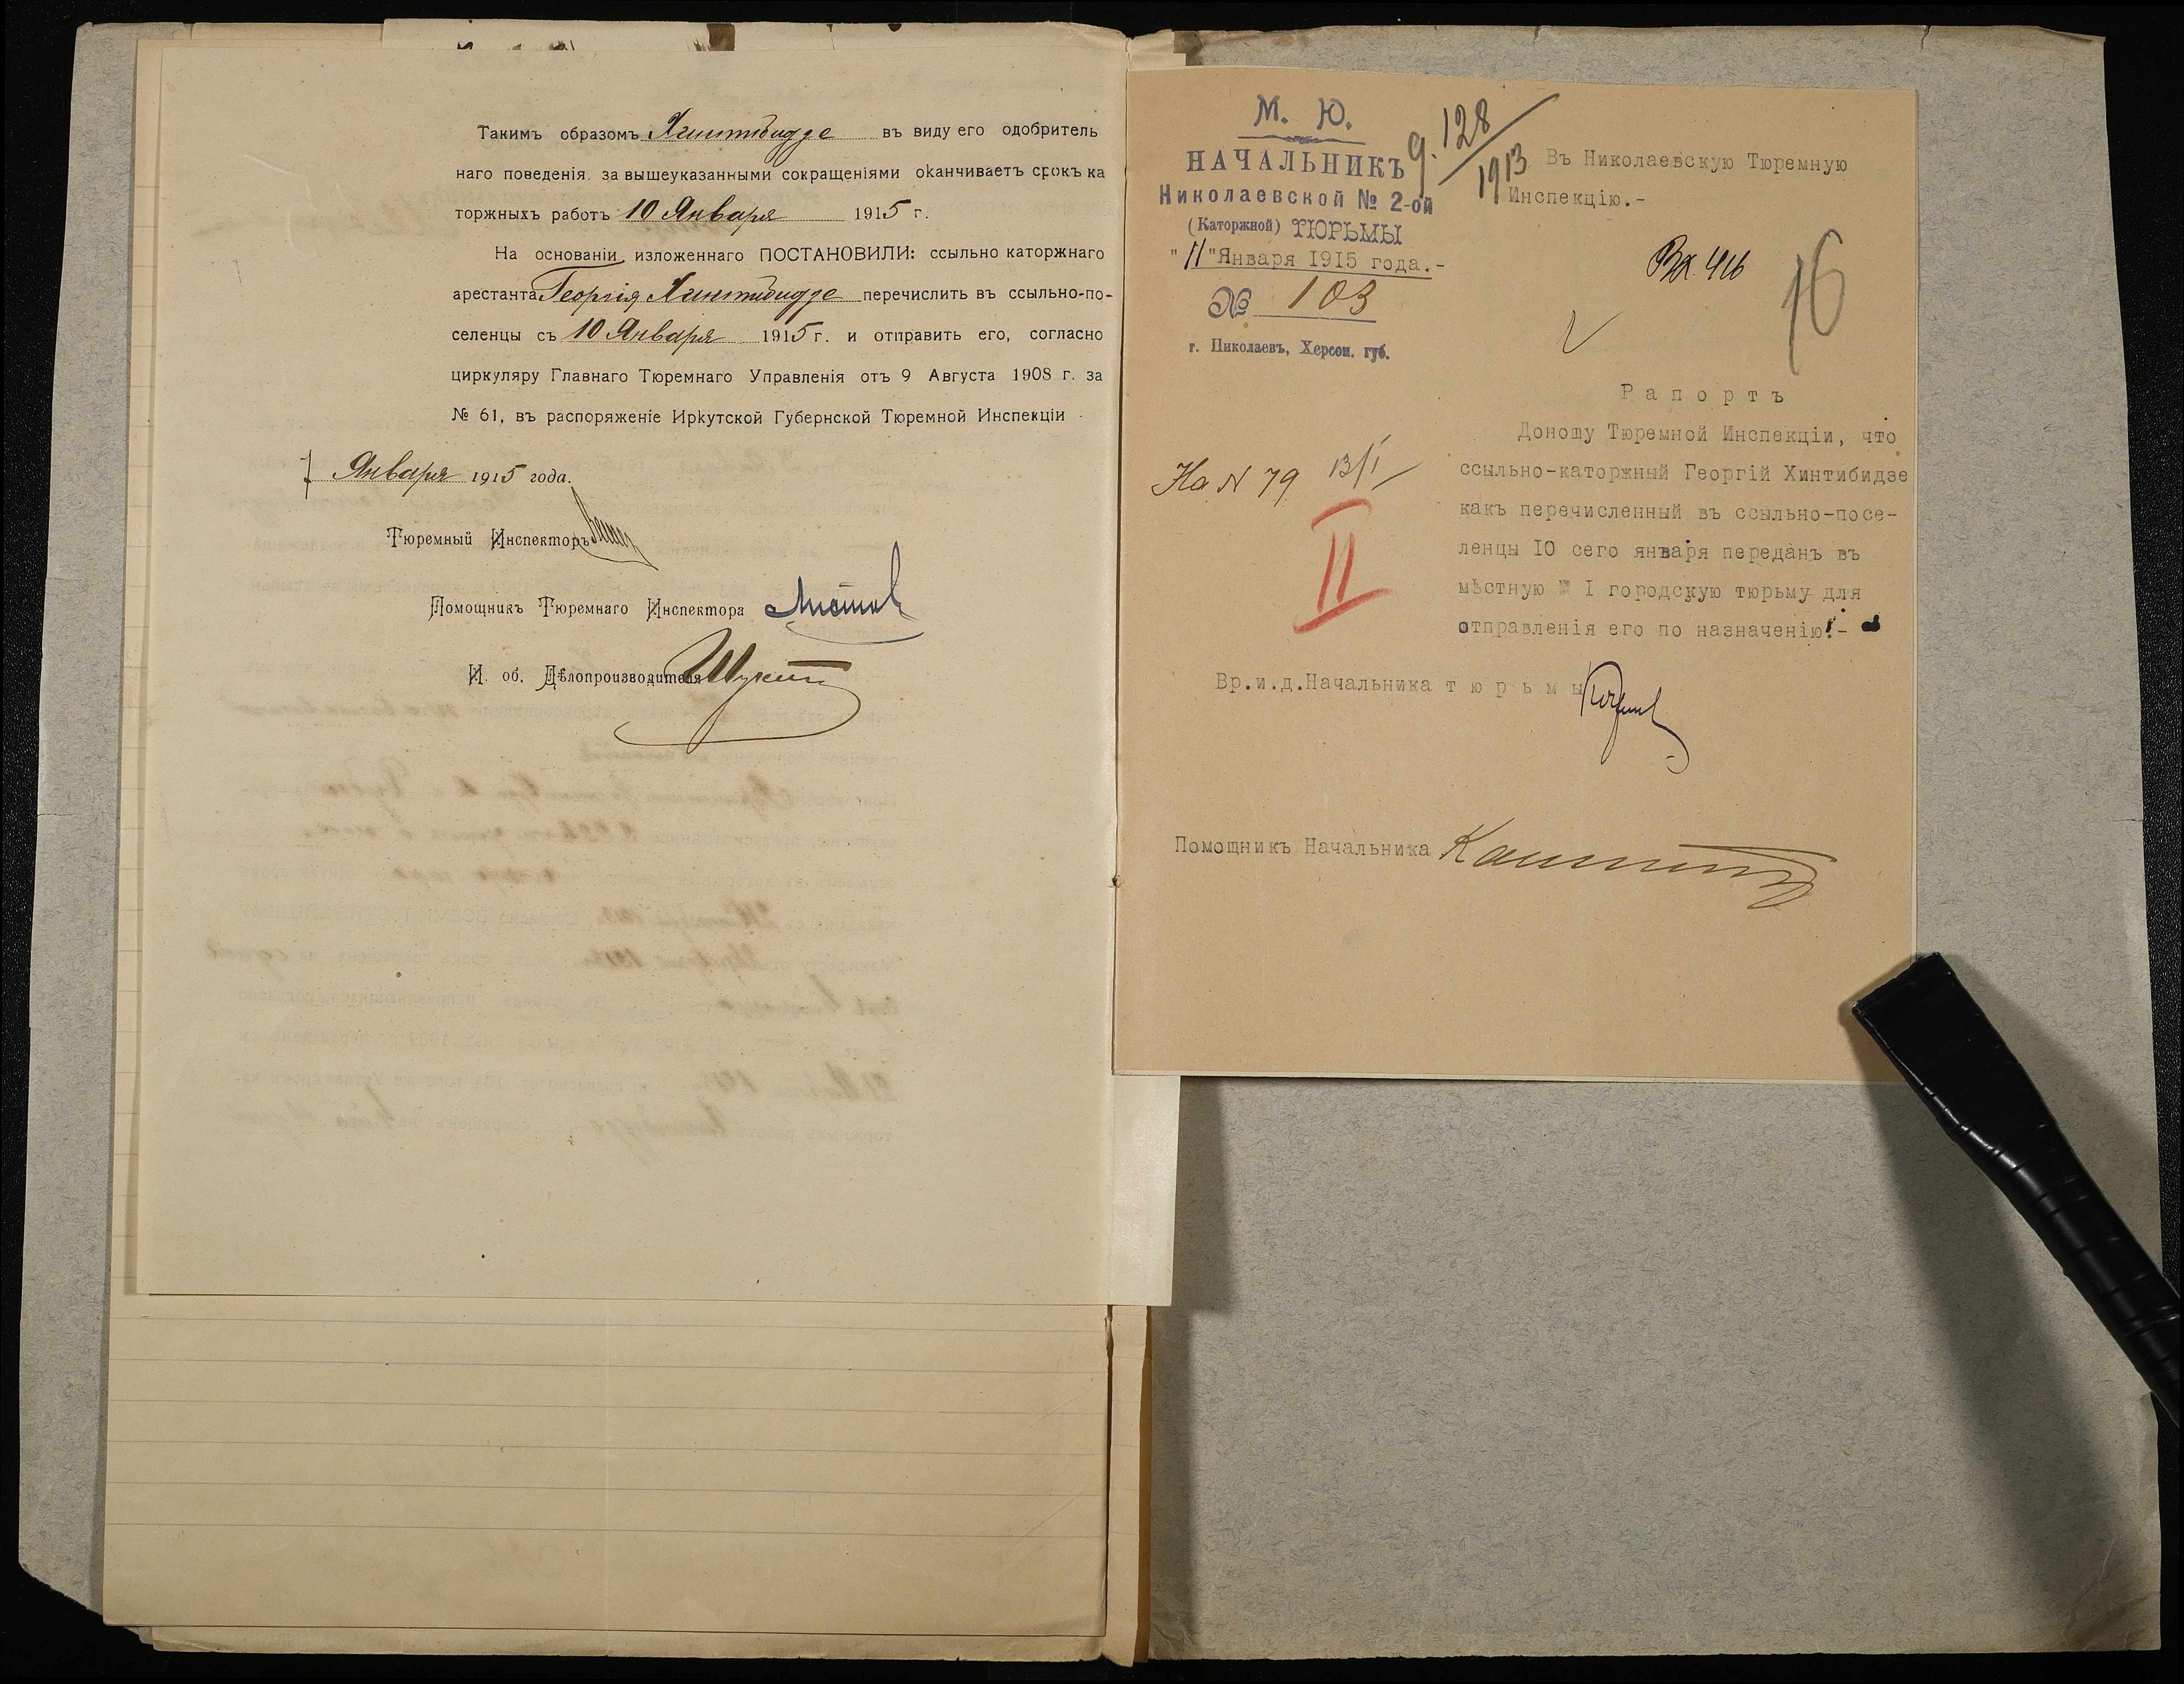 Такимъ образомъ Хинтибидзе въ виду его одобритель
наго поведенія за вышеуказанными сокращеніями оканчиваетъ срокъ ка
торжныхъ работъ 10 Января 1915 г.
На основаніи изложеннаго ПОСТАНОВИЛИ: ссыльно каторжнаго
арестанта Георгія Хинтибидзе перечислить въ ссыльно-по-
селенцы съ 10 Января 1915 г. и отправить его, согласно
циркуляру Главнаго Тюремнаго Управленія отъ 9 Августа 1908 г. за
№ 61, въ распоряженіе Иркутской Губернской Тюремной Инспекціи
7 Января 1915 года.
Тюремный Инспекторъ
Помощникъ Тюремнаго Инспектора
И. об. Дѣлопроизводителя
М. Ю.
НАЧАЛЬНИКЪ
Николаевской № 2-ой
(Каторжной) ТЮРЬМЫ
"11" Января 1915 года.-
№ 103
г. Николаевъ, Херсон. губ.
9.128
1913
Въ Николаевскую Тюремную
Инспекцію.-
Вх. 416
16
Рапортъ
Доношу Тюремной Инспекціи, что
ссыльно-каторжный Георгій Хинтибидзе
какъ перечисленный въ ссыльно-посе-
ленцы 10 сего января переданъ въ
мѣстную № I городскую тюрьму для
отправленія его по назначенію.-
На N 79 13/I
II
Вр.и.д.Начальника тюрьмы
Помощникъ Начальника